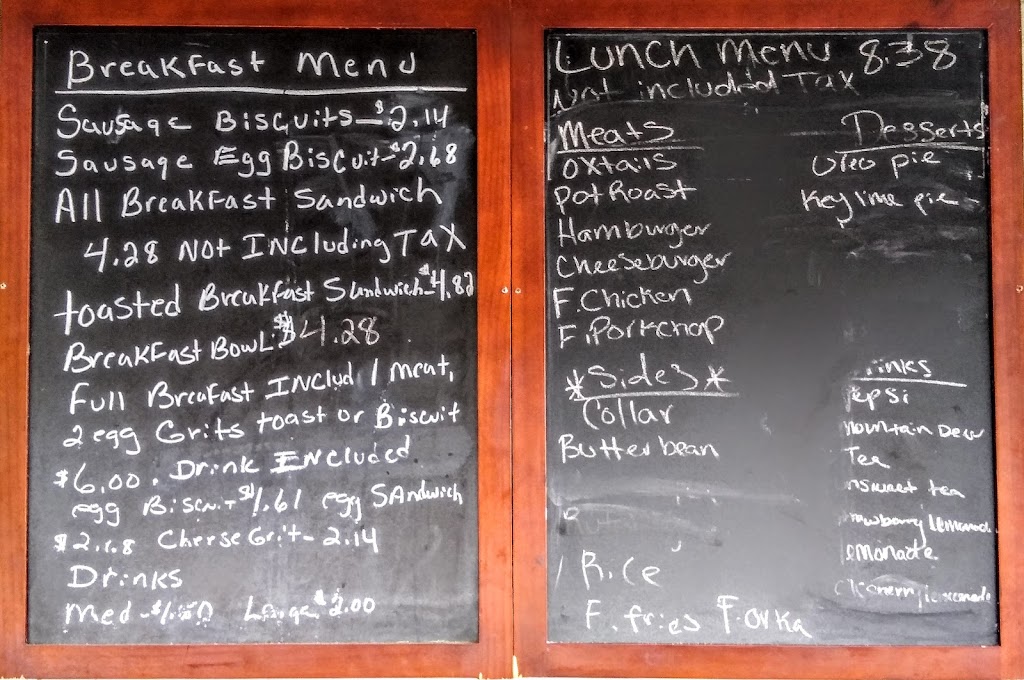 Breakfast Menu
Sausage Biscuits - $2.14
Sausage Egg Biscuit - $2.68
All Breakfast Sandwich
4.28 Not Including Tax
toasted Breakfast Sandwich - $4.82
Breakfast Bowl: $4.28
Full Breafast Includ 1 meat,
2 egg Grits toast or Biscuit
$6.00. Drink Included
egg Biscuit $1.61 egg Sandwich
$2.68 Cheese Grit - 2.14
Drinks
Med - Large $2.00
Lunch Menu 8.38
Not included Tax
Meats
oxtails
Pot Roast
Hamburger
Cheeseburger
F. Chicken
F. Porkchop
*Sides*
Collar
Butter bean
Rice
F. fries F. orka
Desserts
Oreo pie
Key lime pie
rinks
epsi
mountain Dew
Tea
nsweet tea
rawberry Lemonade
lemonade